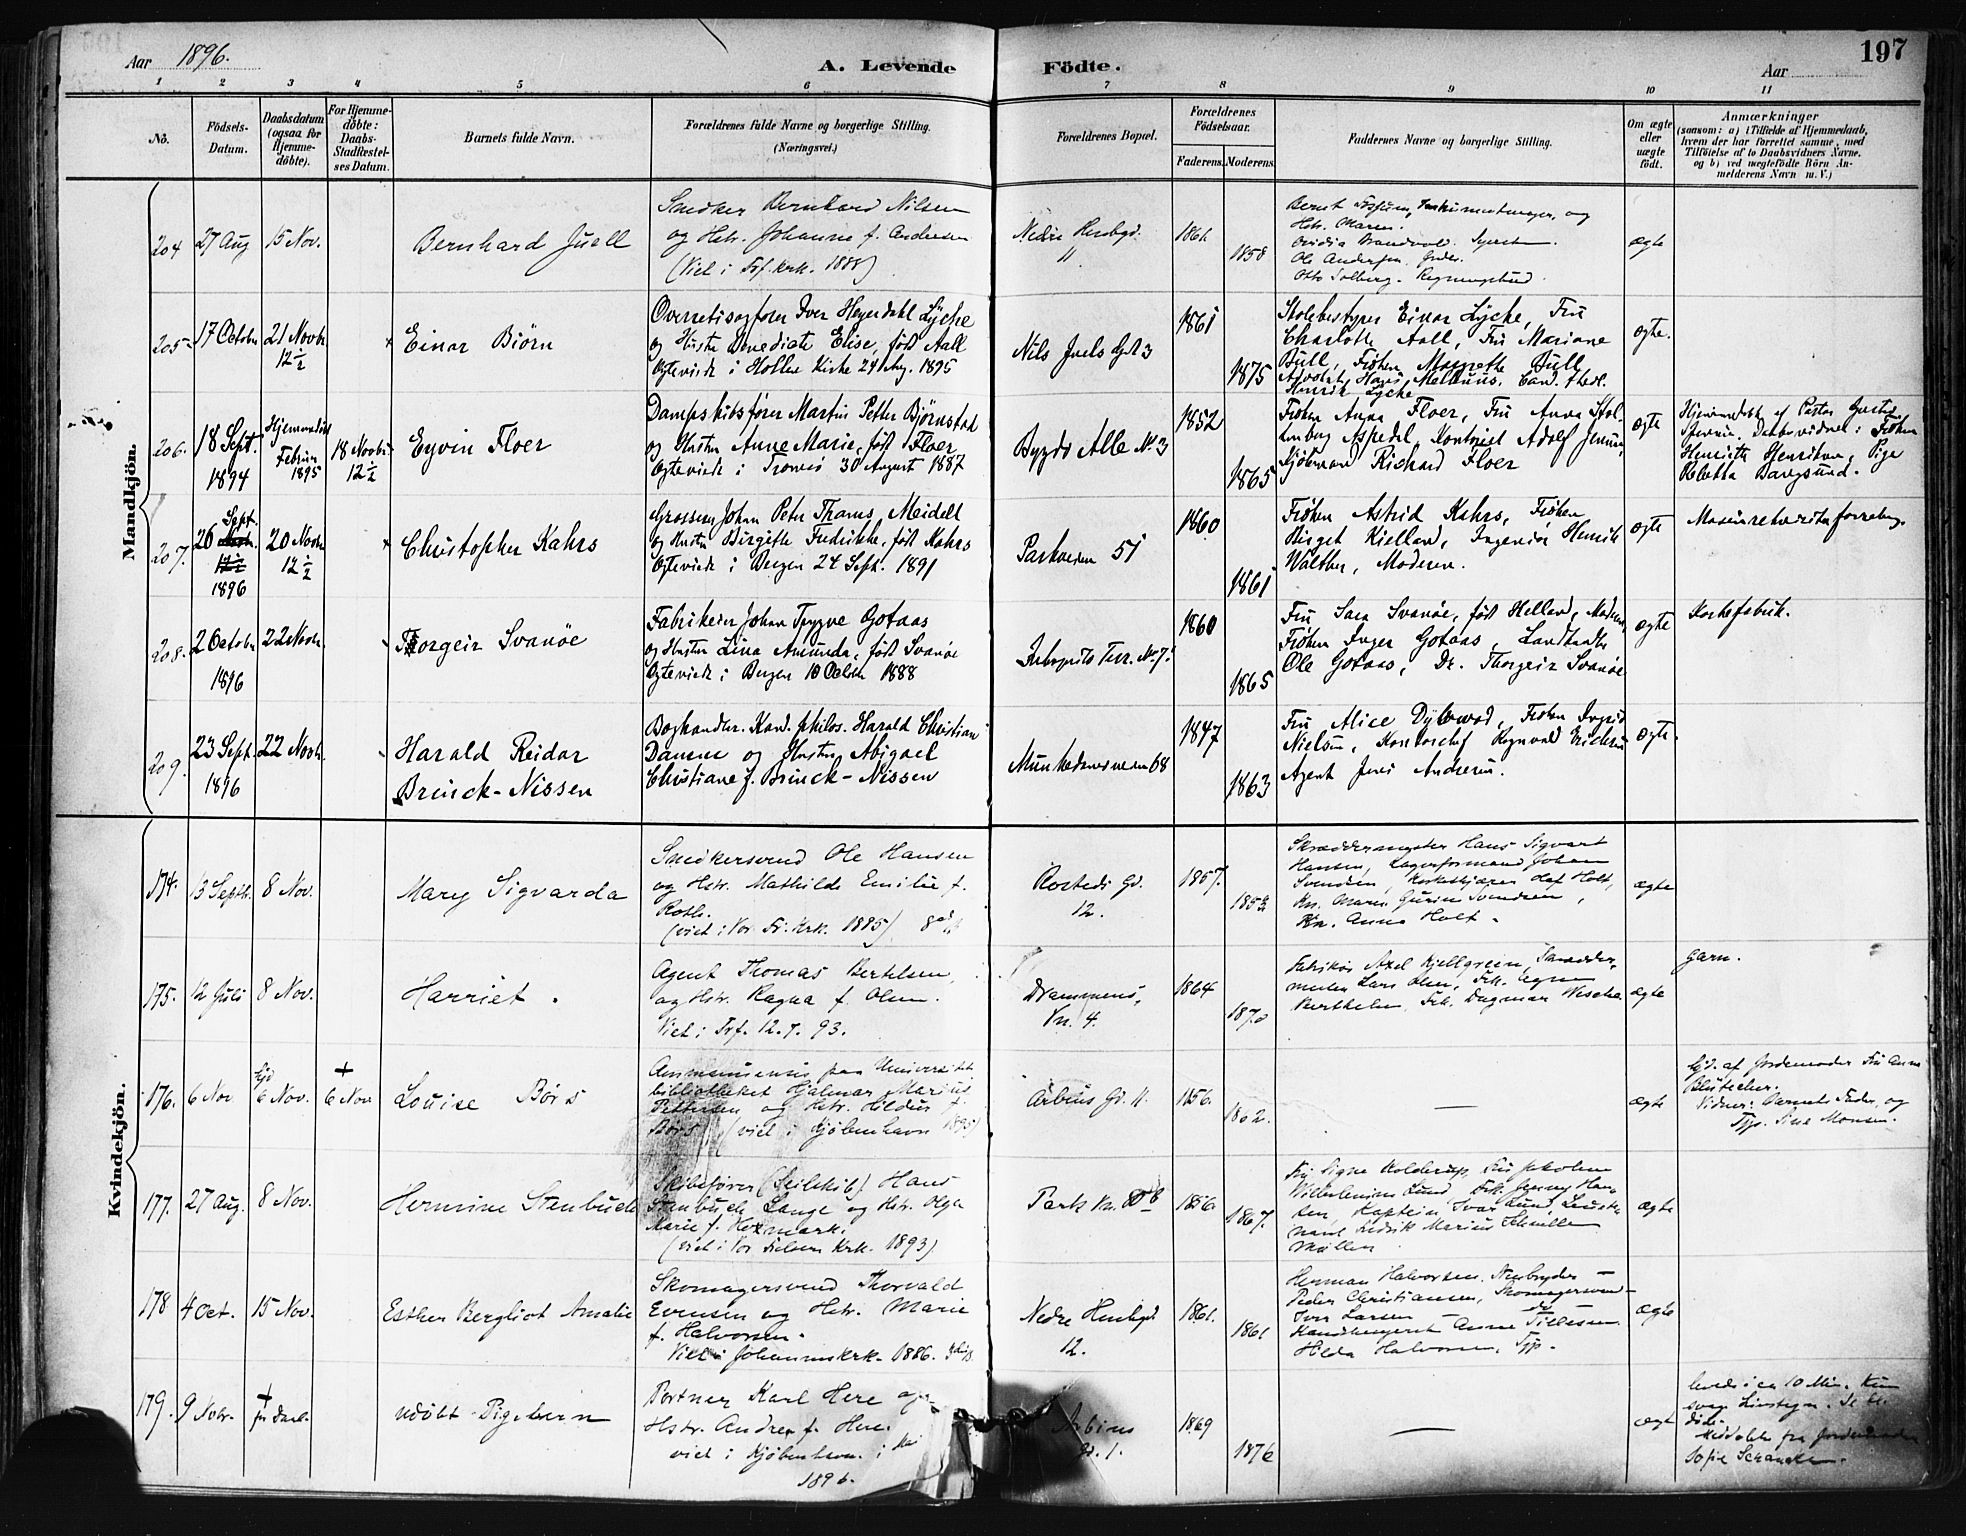 Aar 1896.
A. Levende Födte.
Aar
197
1 2 3 4 5 6 7 8 9 10 11
No.
Födsels-Datum.
Daabsdatum (ogsaa for Hjemmedöbte).
For Hjemmedöbte: Daabs-Stadfæstelses Datum.
Barnets fulde Navn.
Forældrenes fulde Navne og borgerlige Stilling.
(Næringsvei.)
Forældrenes Bopæl.
Forældrenes Födselsaar.
Faderens. Moderens.
Faddernes Navne og borgerlige Stilling.
Om ægte eller uægte födt.
Anmærkninger
(saasom: a) i Tilfælde af Hjemmedaab, hvem der har forrettet samme, med Tilföielse af to Daabsvidners Navne, og b) ved uegtefödte Börn Anmelderens Navn m. V.)
Mandkjön.
204 27 Aug 15 Nov. Bernhard Juell
Snedker Bernhard Nilsen
og Hstr. Johanne f. Andersen
(Viet i Trf. krk. 1888)
Nedre
1861 1858
Otto Solberg.
ægte
205 17 Octobr 21 Novbr 12½ Einar Biörn
Overretssagförer Iver Heyerdahl Lyche
og Hustru Benedicte Elise, födt Aall
Ægteviede i Holla Kirke 29 Aug. 1895
Nils Juels Gd 3
1861 1875
Skolebestyrer Einar Lyche, Fru
Charlotte Aall, Fru Mariane
Bull, Fröken Magrethe Bull
Advokat Hans Mellbuus, Cand. theol.
Henrik Lyche
ægte.
206. 18 Sept. 1894 Hjemmedöbt Februar 1895 18 Novbr 12½ Eyvin Floer
Dampskibsförer Martin Petter Björnstad
og Hustru Anne Marie, födt Floer
Ægteviede i Tromsö 30 August 1887
Bygdö Alle No 3
1852 1865
Fröken Anna Floer, Fru Anna Stol-
tenberg Aspedel, Kontorist Adolf Jensen,
Sjömand Richard Floer
ægte
Hjemmedöbt af Pastor
Daabsvidner: Fröken
Henriette Henriksen, Pige
207. 20 Sept. 1896 20 Novbr 12½ Christopher Kahrs
Grosserer Johan Peter Thams Meidell
og Hustru Birgethe Fredrikke, födt Kahrs
Ægteviede i Bergen 24 Sept. 1891
Parkveien 51
1860 1861
Fröken Astrid Kahrs, Fröken
Birget Kielland, Ingeniör Henrik
Walther, Moderen.
ægte
208. 2 Octobr 1896 22 Novbr. Thorgeir Svanöe
Fabrikeier Johan Trygve Gotaas
og Hustru Lina Amunda, födt Svanöe
Ægteviede i Bergen 10 October 1888
Inkognito Ter. No 7.
1860 1865
Fru Sara Svanöe, födt Helland, Moderen,
Fröken Inger Gotaas, Landhandler
Ole Gotaas, Dr. Thorgeir Svanöe
ægte
Korkefabrik.
209. 23 Sept. 1896 22 Novbr. Harald Reidar
Brinck-Nissen
Boghandler. Kand. philos. Harald Christian
Damm og Hustru Abigael
Christiane f. Brinck-Nissen
Munkedamsveien 68
1847 1863
Fru Alice Dybwad, Fröken Ingrid
Nielsen, Kontorchef Ragnvald Erichsen
Agent Jens Andersen.
ægte.
Kvindekjön.
174. 13 Septbr. 8 Nov. Mary Sigvarda
Snedkersvend Ole Hansen
og Hstr. Mathilde Emilie f.
Roth.
(viet i Vor Fr. Krk. 1885)
Rosteds Gd.
12.
1857.
Skræddermester Hans Sigvart
Hansen, Lagerformand Johan
Svendsen, Kirketjener Olaf Holt,
Kn. Maren Gurine Svendsen,
Kn. Anna Holt.
ægte
175. 12 Juli 8 Nov. Harriet.
Agent Thomas Bertelsen
og Hstr. Ragna f. Olsen.
Viet i Trf. 12. 7. 93.
Drammens,
Vn. 4.
1864 1870
Fabrikör Axel Kjellgren,
Lars Olsen, Frk. Signe
Berthelsen, Frk. Dagmar
ægte
Garn.
176. 6 Nov Hjd 6 Nov. + 6 Nov Louise Börs
Amanuensis paa Universitet
bibliotheket Hjalmar Marius
Pettersen og Hstr. Hildur f.
Börs (viet i Kjöbenhavn 1895)
Arbins Gd. 11.
1856. 1862.
—
ægte
Hjd. af Jordemoder Fru Anna
Vidner: Barnets Fader, og
Tjp. Sine Monsen.
177. 27 Aug. 8 Nov. Hermine Stenbuch
Skibsförer (Seilskib) Hans
Stenbuch Lange og Hstr. Olga
Marie f.
(viet i Vor Frelsers Krk. 1893)
Park Vn.
1856. 1867.
Frk. Signe Kolderup, Fru Jakobine
Wilhelmine Lund, Frk. Jenny Han-
sen, Kaptein Ivar Lund, Leut-
nant Ludvik Marius
Möller.
ægte
178 4 Oct. 15 Nov. Esther Bergliot Amalie
Skomagersvend Thorvald
Evensen og Hstr. Marie
f. Halvorsen.
Viet i Johanneskrk. 1886.
Nedre
12.
1861. 1861
Herman Halvorsen, Stenbryder —
Peder Christiansen, Skomagersvend —
Iver Larsen — do
Anne Tillesen
Hilda Halvorsen, Tjp.
ægte
179. 9 Novbr. + för Daab. Udöbt Pigebarn
Portner Karl Here og
Hstr. Andrea f.
viet i Kjöbenhavn i Mai
1896.
Arbins
Gd. 1.
1869 1876
—
ægte
levede i ca 10 Min.
Jordemoder
Sofie